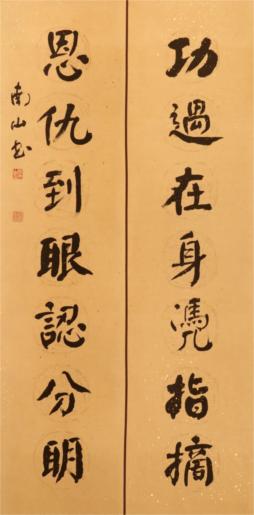 功過在身憑指摘
恩仇到眼認分明
南山書